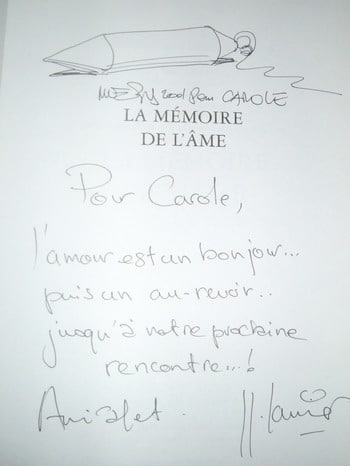 MEZZY 2001 pour CAROLE
LA MÉMOIRE
DE L'ÂME
Pour Carole,
l'amour est un bonjour...
puis un au-revoir..
jusqu'à notre prochaine
rencontre...!